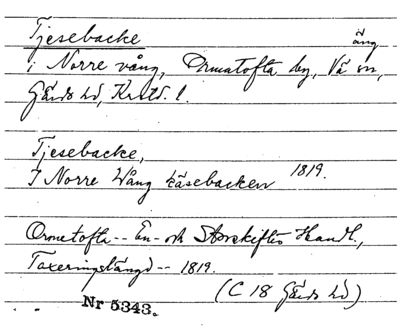 Tjesebacke
äng
i Norre vång, Ormatofta by, Vä sn,
Gärds hd, Krist. l.
Tjesebacke,
I Norre Wång käsebacken 1819.
Ormetofta -- En- och Storskiftes Handl.,
Taxeringslängd -- 1819.
(C 18 Gärds hd)
Nr 5343.